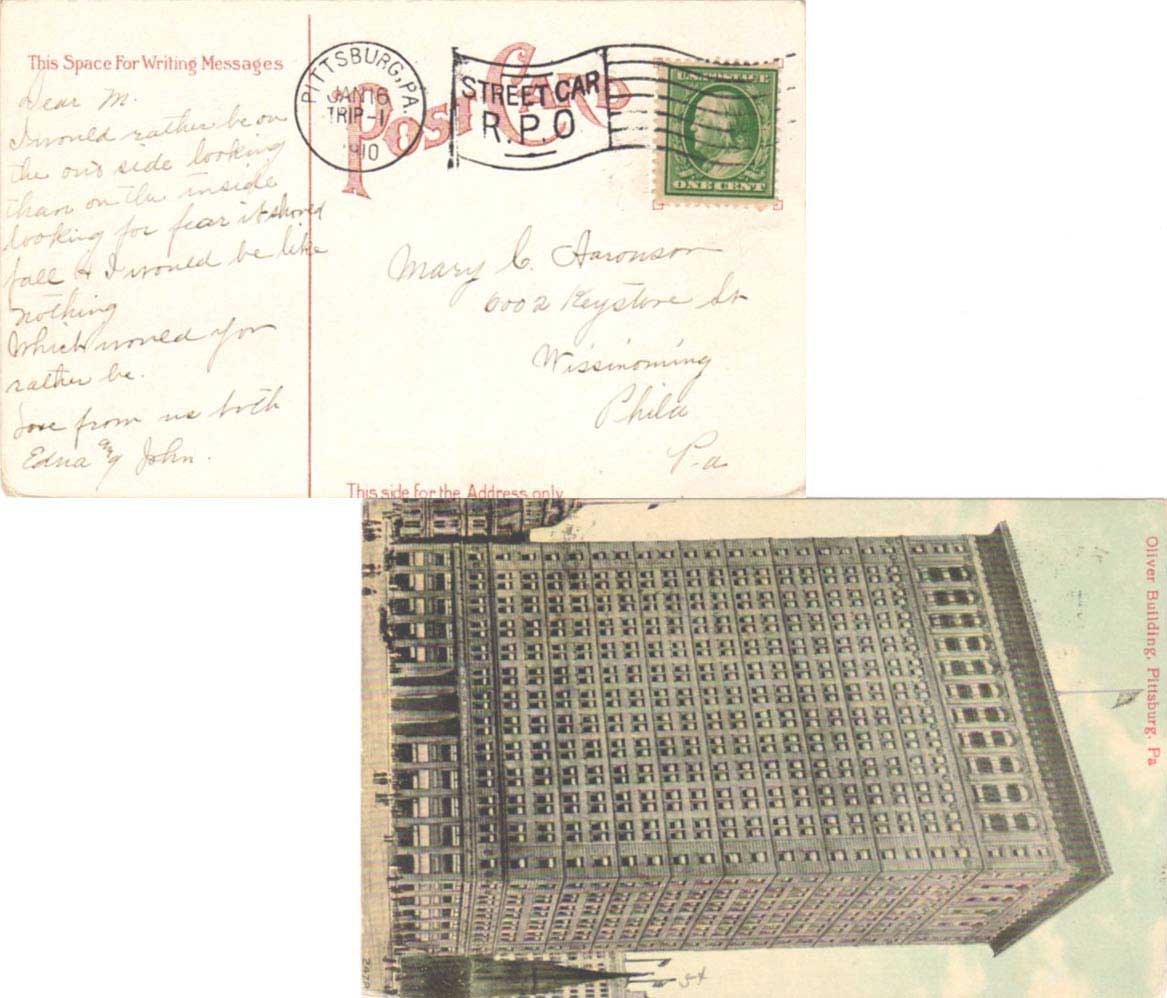 This Space For Writing Messages
Dear M.
I would rather be on
the out side looking
than on the inside
looking for fear it should
fall & I would be like
nothing
Which would you
rather be.
Love from us both
Edna and John.
PITTSBURG, PA.
JAN 16
TRIP-1
1910
POST CARD
STREET CAR
R.P.O
U.S. POSTAGE
ONE CENT
Mary C. Aaronson
6002 Keystone St
Wissinoming
Phila
Pa
This side for the Address only
Oliver Building, Pittsburg, Pa